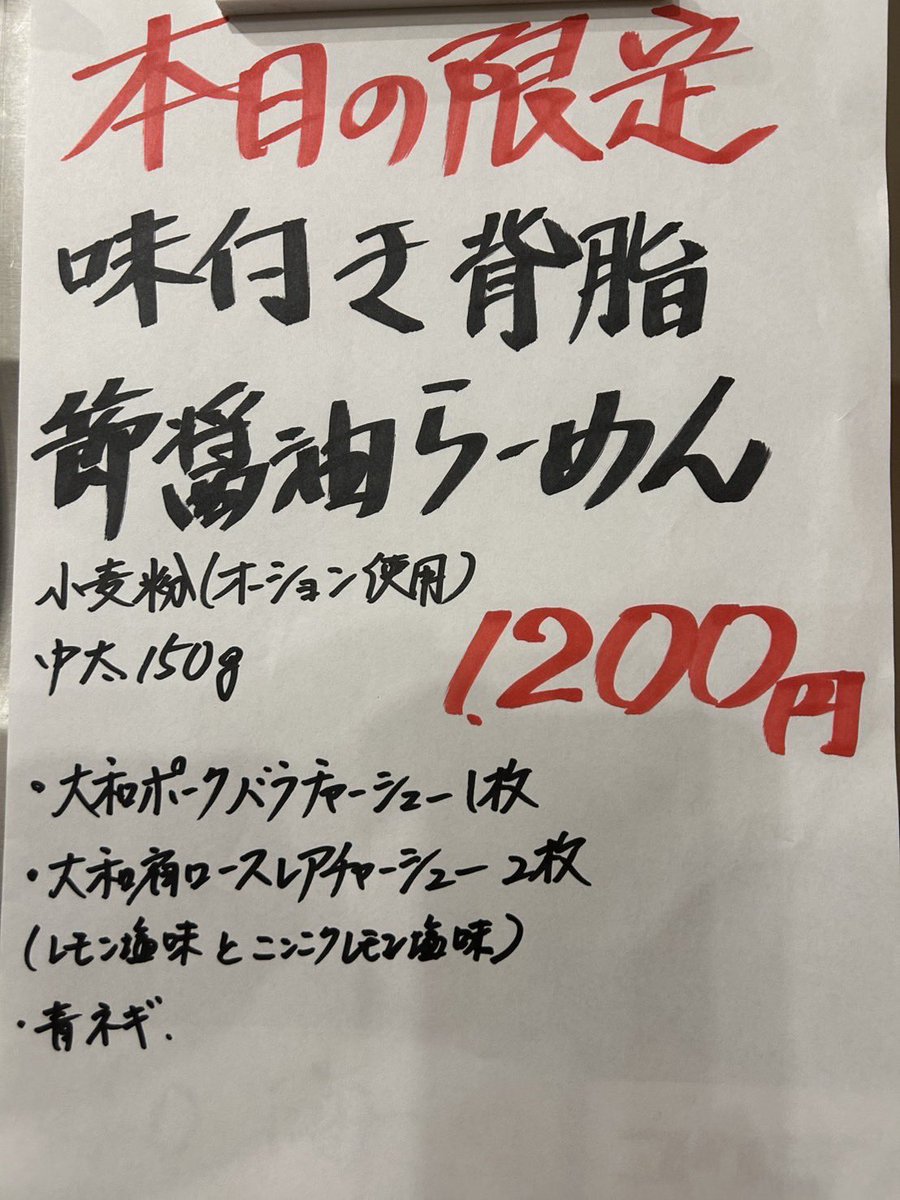 本日の限定
味付き背脂
節醤油らーめん
小麦粉(オーション使用)
中太150g
1,200円
・大和ポークバラチャーシュー1枚
・大和肩ロースレアチャーシュー2枚
(レモン塩味とニンニクレモン塩味)
・青ネギ.